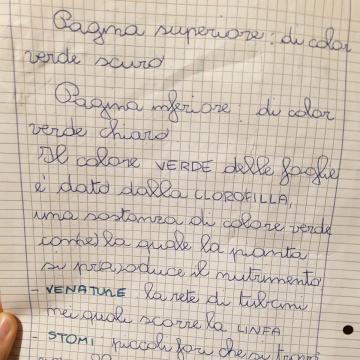 Pagina superiore: di color
verde scuro
Pagina inferiore: di color
verde chiaro
Il colore VERDE delle foglie
è dato dalla CLOROFILLA,
una sostanza di colore verde
con la quale la pianta
si produce il nutrimento
- VENATURE la rete di tubicini
nei quali scorre la LINFA
- STOMI piccoli fori che si